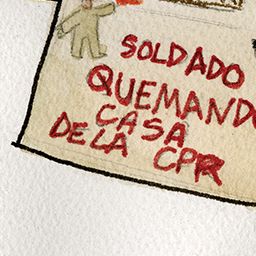 SOLDADO
QUEMANDO
CASA
DE LA CPR